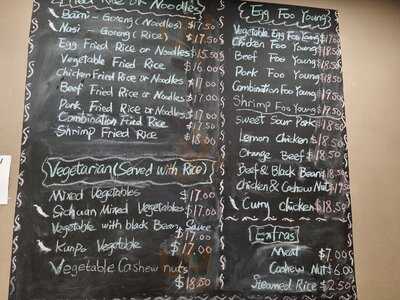 Fried Rice or Noodles
Bami - Goreng (Noodles) $17.50
Nasi - Goreng (Rice) $17.50
Egg Fried Rice or Noodles $15.50
Vegetable Fried Rice $16.00
Chicken Fried Rice or Noodles $17.00
Beef Fried Rice or Noodles $17.00
Pork Fried Rice or Noodles $17.00
Combination Fried Rice $17.50
Shrimp Fried Rice $18.00
Vegetarian (Served with Rice)
Mixed Vegetables $17.00
Sichuan Mixed Vegetables $17.00
Vegetable with black Bean Sauce
$17.00
Kunpo Vegetable $17.00
Vegetable Cashew nuts
$18.50
Egg Foo Young
Vegetable Egg Foo Young
Chicken Foo Young $18.50
Beef Foo Young $18.50
Pork Foo Young $18.50
Combination Foo Young $19.50
Shrimp Foo Young
Sweet Sour Pork $18.50
Lemon Chicken $18.50
Orange Beef $18.50
Beef & Black Bean $18.50
Chicken & Cashew Nut
Curry Chicken $18.50
Extras
Meat $7.00
Cashew Nut $6.00
Steamed Rice $2.50